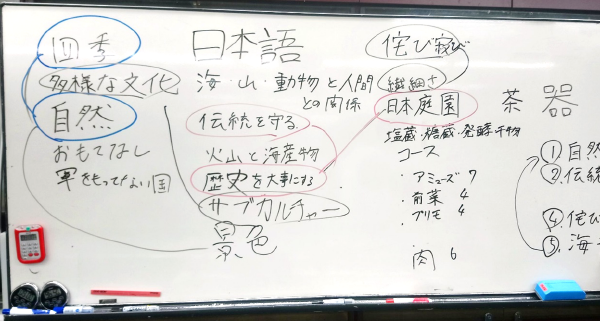 四季
多様な文化
自然
おもてなし
軍をもってない国
日本語
海・山・動物と人間
との関係
伝統を守る
火山と海産物
歴史を大事にする
サブカルチャー
景色
侘び寂び
繊細さ
日本庭園
塩蔵・糖蔵・発酵・干物
コース
・アミューズ 7
・前菜 4
・プリモ 4
・
肉 6
茶器
① 自然
② 伝統
④ 侘び
⑤ 海